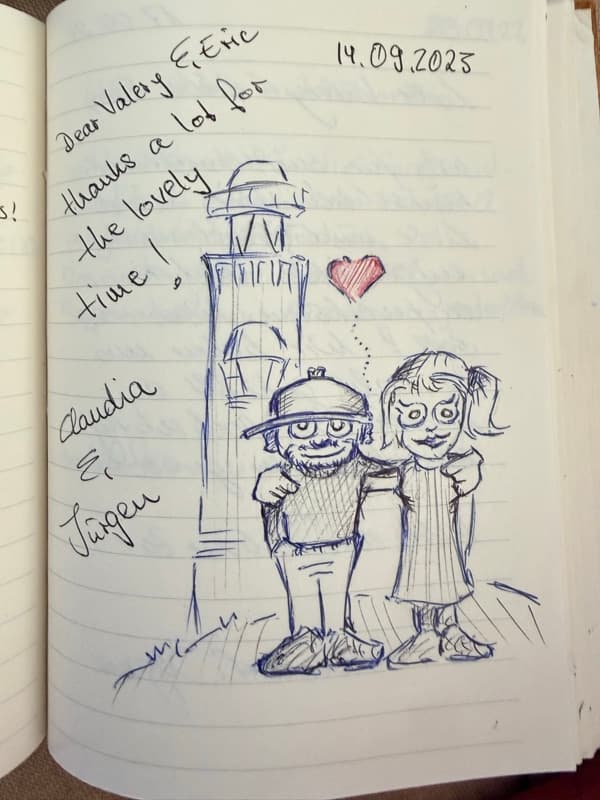 14.09.2023
Dear Valery & Eric
thanks a lot for
the lovely
time!
Claudia
&
Jürgen
s!